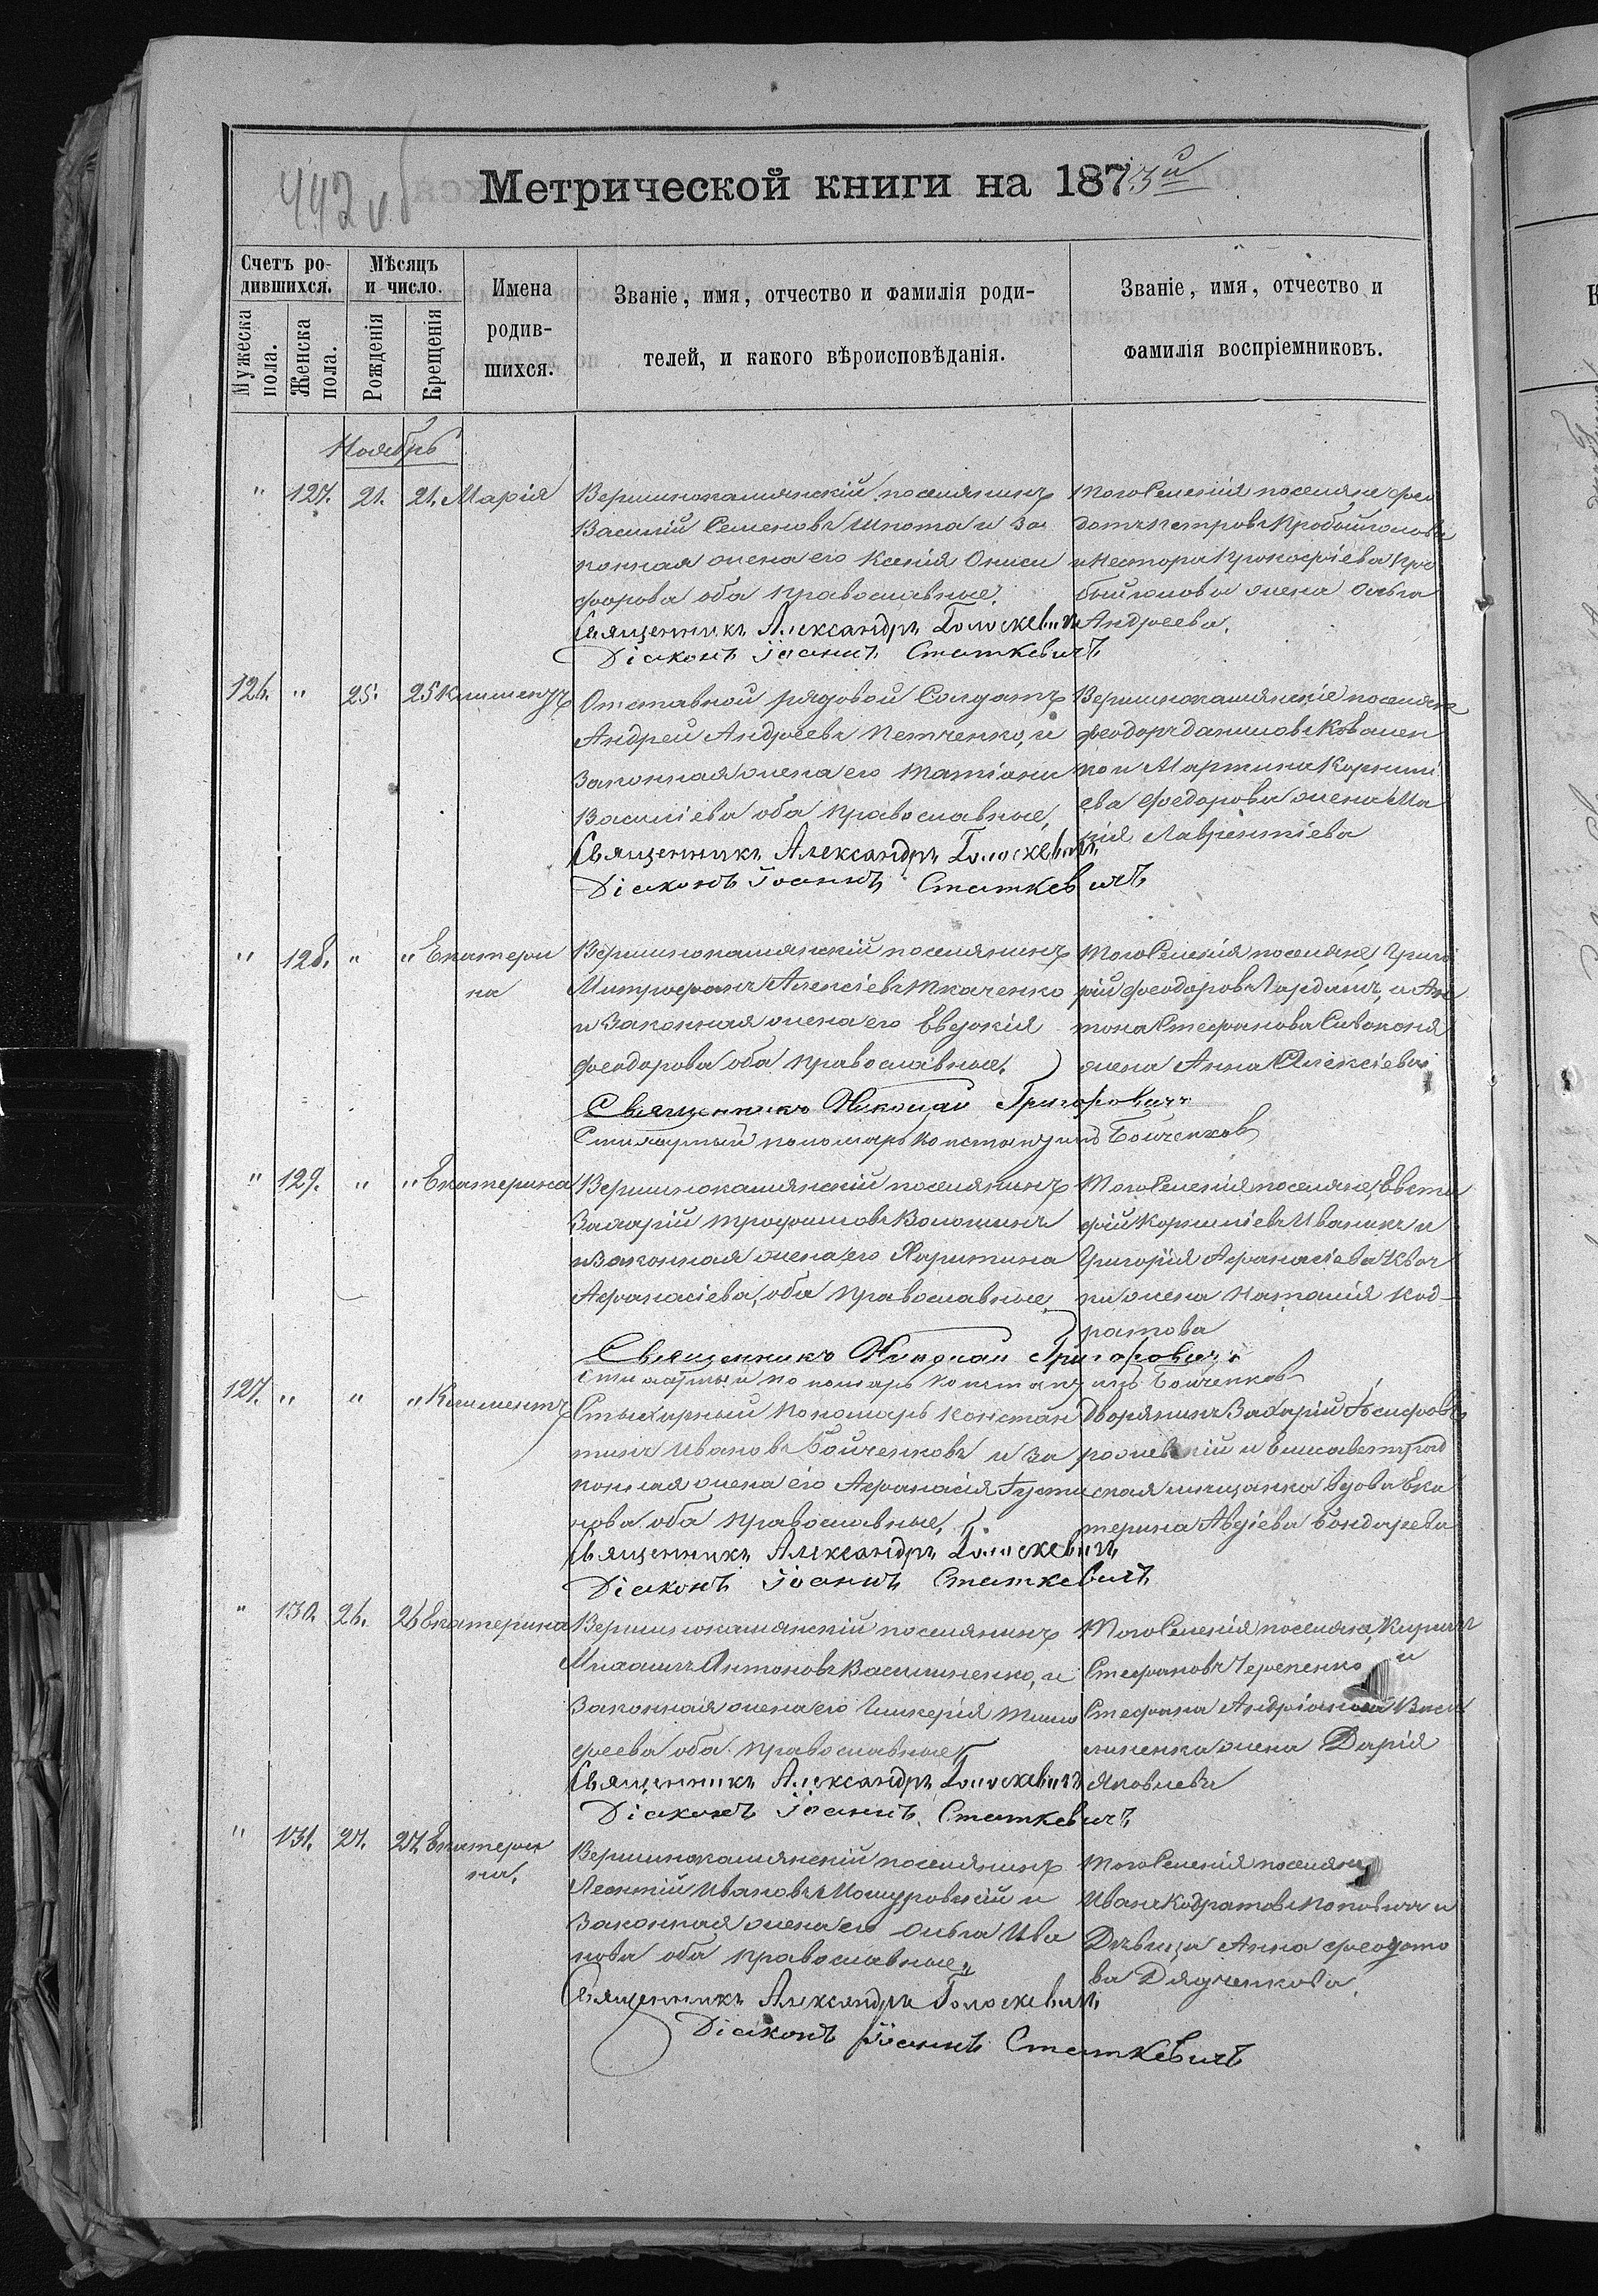 442 об
Метрической книги на 1873й
Счетъ ро-
дившихся.
Мужеска
пола.
Женска
пола.
Мѣсяцъ
и число.
Рожденія
Крещенія
Имена
родив-
шихся.
Званіе, имя, отчество и фамилія роди-
телей, и какого вѣроисповѣданія.
Званіе, имя, отчество и
фамилія воспріемниковъ.
Ноябрь
" 127. 21. 21. Марія
Вершинокамянскій поселянинъ
Василій Семеновъ Шпота и за
конная жена его Ксенія Ониси
форова оба православные.
Священникъ Александръ Голоскевичъ
Діаконъ Іоаннъ Статкевичъ
Того Селенія поселяне Фео
дотъ Петровъ Пробыйголова
и Нестора Прокофіева Про
быйголовы жена Ольга
Андреева.
126. " 25. 25 Климентъ
Отставной рядовой Солдатъ
Андрей Андреевъ Петченко, и
Законная жена его Татіана
Василіева оба православные,
Священникъ Александръ Голоскевичъ
Діаконъ Іоаннъ Статкевичъ
Вершинокамянскіе поселяне
Феодоръ Даниловъ Ковален
ко и Мартина Корнилі
ева Федорова жена Ма
рія Лаврентіева
" 128. " " Екатери
на
Вершинокамянскій поселянинъ
Митрофанъ Алексіевъ Ткаченко
и Законная жена его Евдокія
Феодорова оба православные.
Священникъ Николай Григоровичъ
Стихарный пономарь Константинъ Бойченковъ
Того Селенія поселяне, Григо
рій Феодоровъ Гарданъ, и Ан
тона Стефанова Сивоконя
жена Анна Алексіева
" 129. " " Екатерина
Вершинокамянскій поселянинъ
Захарій Трофимовъ Волошинъ
и Законная жена его Харитина
Афанасіева, оба православные
Священникъ Николай Григоровичъ
Стихарный пономарь Константинъ Бойченковъ
Того Селенія поселяне, Евста
фій Корниліевъ Иваникъ и
Григорія Афанасіева
жена Наталія Код-
ратова
127. " " " Климентъ
Стихарный Пономарь Констан
тинъ Ивановъ Бойченковъ и за
конная жена его Афанасія Густи
нова оба православные,
Священникъ Александръ Голоскевичъ
Діаконъ Іоаннъ Статкевичъ
Дворянинъ Захарій Іосифовъ
и Елисаветград
ская мещанка вдова Ека
терина Авдіева Бондарева
" 130. 26. 26 Екатерина
Вершинокамянскій поселянинъ
Михаилъ Антоновъ Василиненко, и
Законная жена его Гликерія Тимо
феева оба православные
Священникъ Александръ Голоскевичъ
Діаконъ Іоаннъ Статкевичъ
Того Селенія поселяне, Кирилъ
Стефановъ Черепенко и
Стефана Андріанова Васи
линенка жена Дарія
Яковлева
" 131. 27. 27. Екатери
на.
Вершинокамянскій поселянинъ
Леонтій Ивановъ Мошуровскій и
Законная жена его Ольга Ива
нова оба православные
Священникъ Александръ Голоскевичъ
Діаконъ Іоаннъ Статкевичъ
Того Селенія поселяне,
Иванъ Кодратовъ Поповичъ и
Дѣвица Анна Феодото
ва Дядченкова.